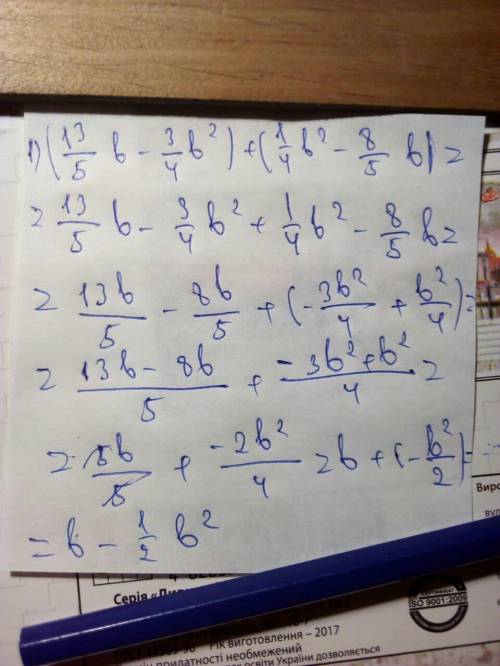 1) (13/5 b - 3/4 b²) + (1/4 b² - 8/5 b) =
= 13/5 b - 3/4 b² + 1/4 b² - 8/5 b =
= 13b/5 - 8b/5 + (-3b²/4 + b²/4) =
= (13b - 8b)/5 + (-3b² + b²)/4 =
= 5b/5 + -2b²/4 = b + (-b²/2) =
= b - 1/2 b²
Виро
ISO 9001-2009
Серія «Ди
Рік виготовлення – 2017
придатності необмежений
освіти України дозволяється